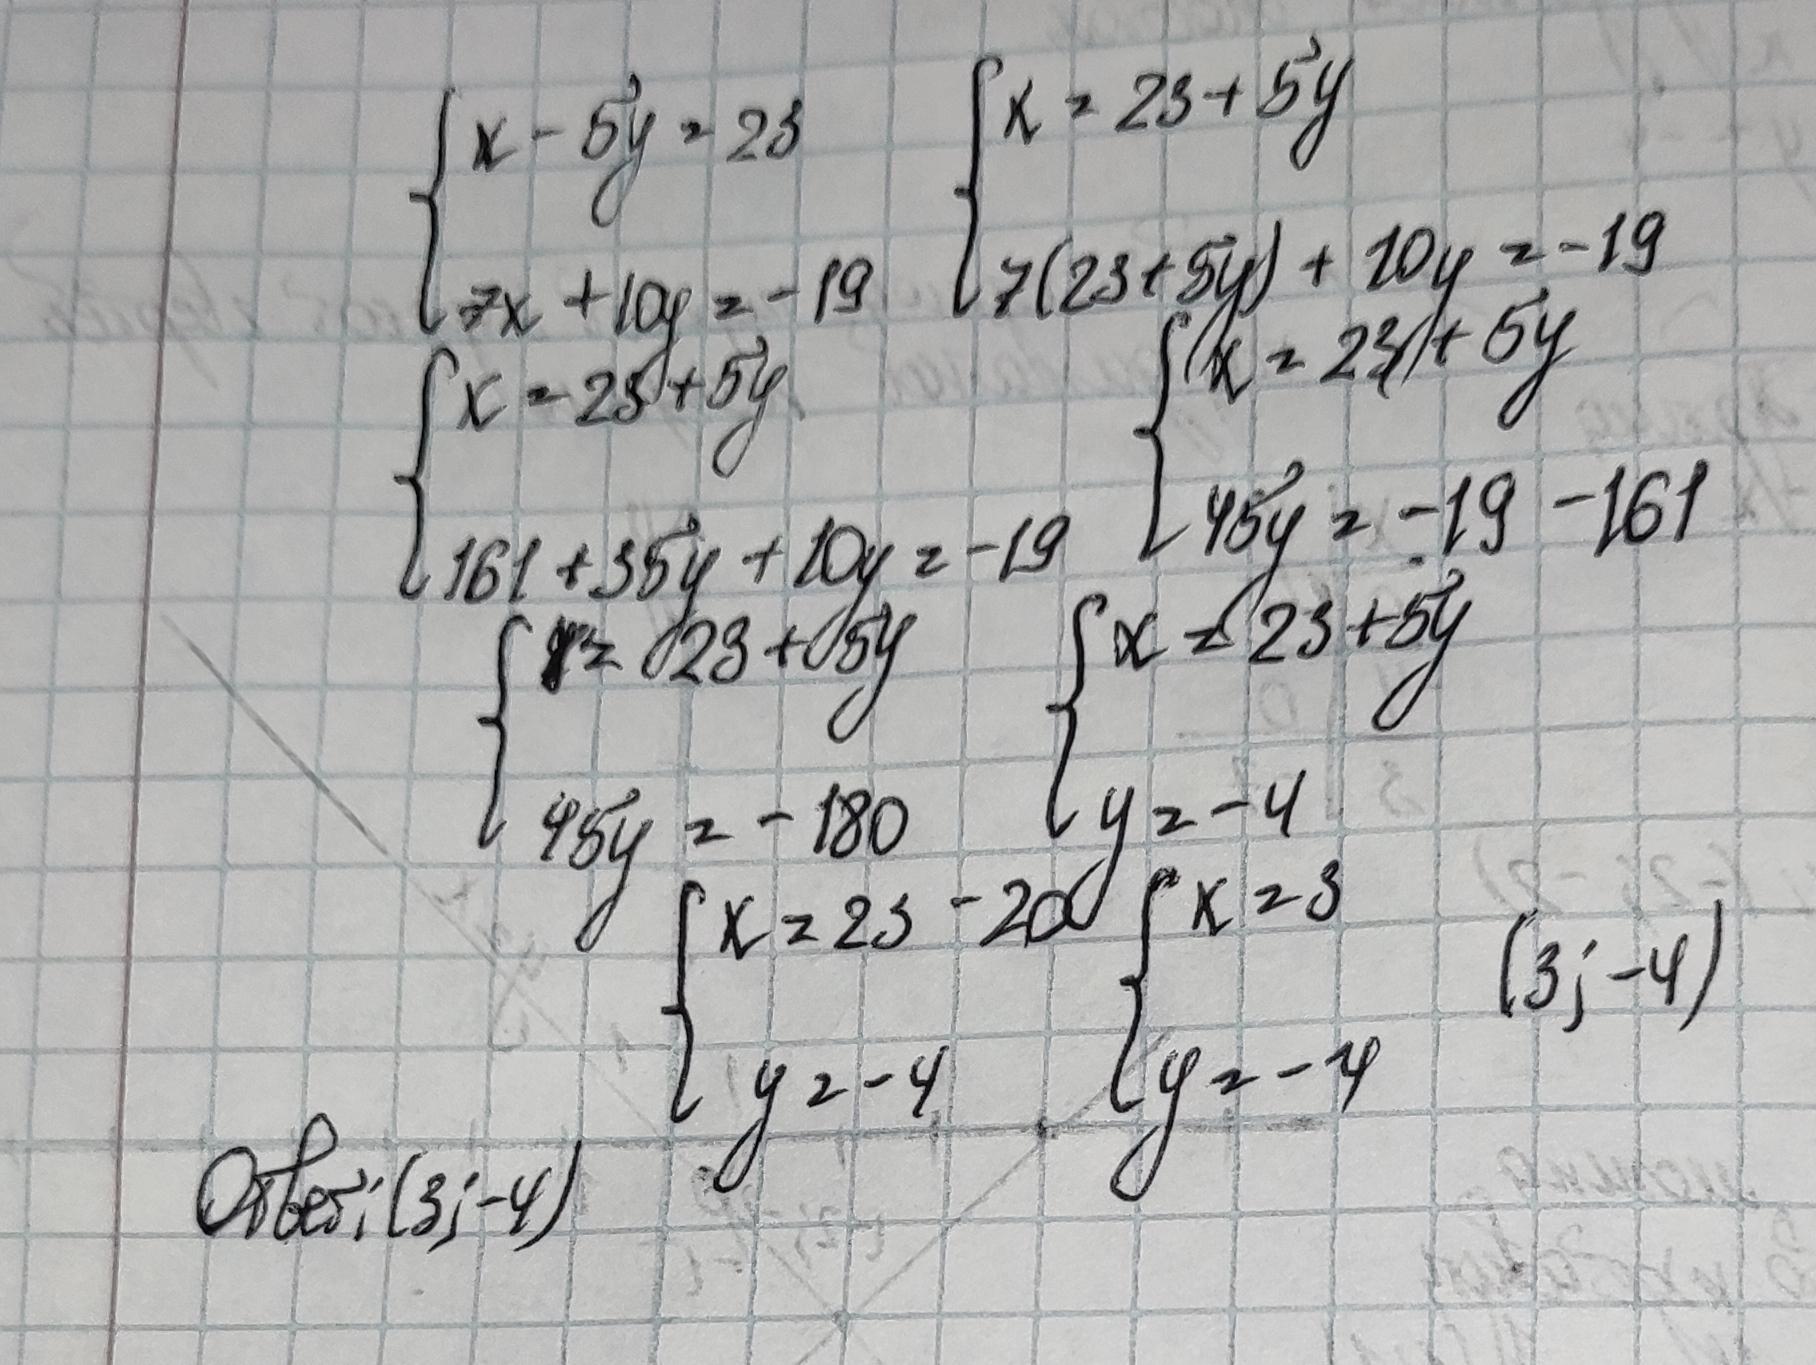 x - 5y = 23
7x + 10y = -19
x = 23 + 5y
7(23 + 5y) + 10y = -19
x = 23 + 5y
161 + 35y + 10y = -19
x = 23 + 5y
45y = -19 - 161
x = 23 + 5y
45y = -180
x = 23 + 5y
y = -4
x = 23 - 20
y = -4
x = 3
y = -4
(3; -4)
Ответ: (3; -4)